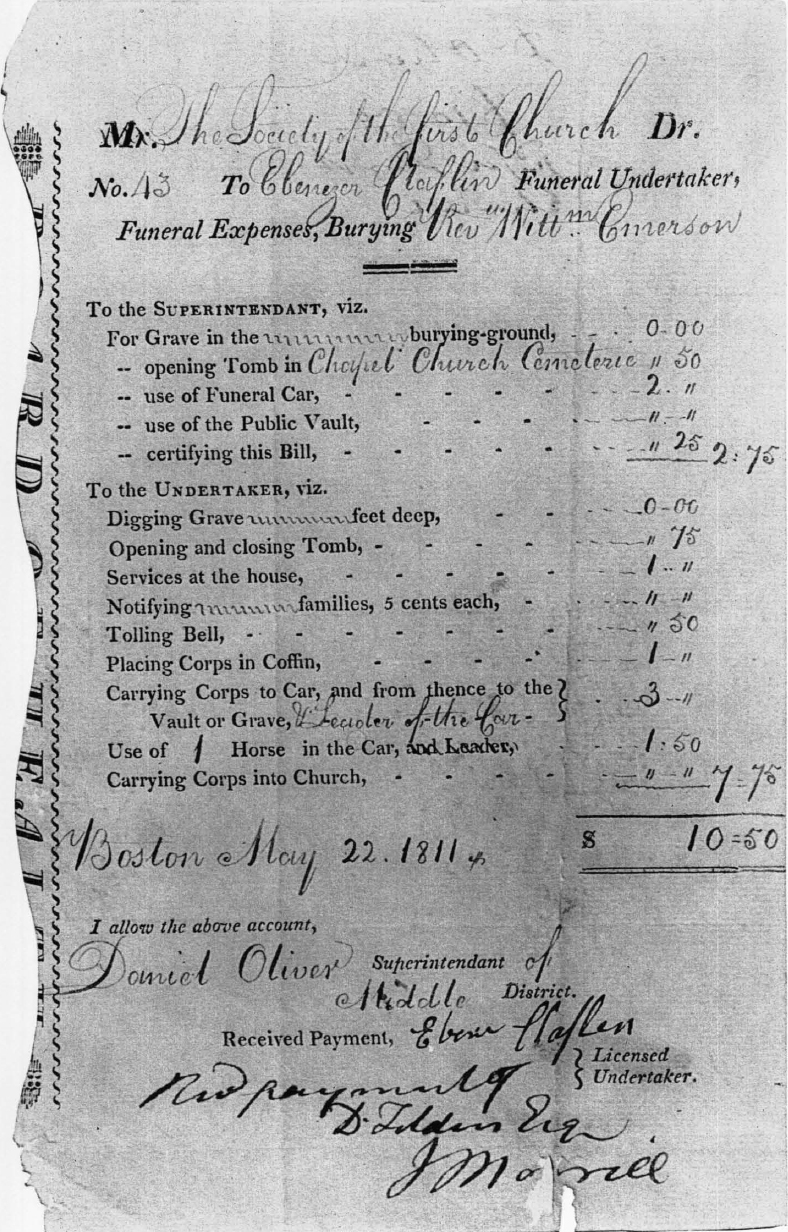 Mr. The Society of the first Church Dr.
No. 43 To Ebenezer Claflin Funeral Undertaker,
Funeral Expenses, Burying Revd Willm Emerson
To the SUPERINTENDANT, viz.
For Grave in the burying-ground, - - - 0-00
-- opening Tomb in Chapel Church Cemeterie " 50
-- use of Funeral Car, - - - - - 2. "
-- use of the Public Vault, - - - " - "
-- certifying this Bill, - - - - - " 25 2:75
To the UNDERTAKER, viz.
Digging Grave feet deep, - - 0-00
Opening and closing Tomb, - - - - - " 75
Services at the house, - - - - - 1 - "
Notifying families, 5 cents each, - " "
Tolling Bell, - - - - - - - " 50
Placing Corps in Coffin, - - - - - 1 - "
Carrying Corps to Car, and from thence to the } 3 - "
Vault or Grave, & Leader of the Car -
Use of 1 Horse in the Car, and Leader, 1:50
Carrying Corps into Church, - - - - " " 7=75
Boston May 22. 1811 $ 10=50
I allow the above account,
Daniel Oliver Superintendant of
Middle District.
Received Payment, Ebenr Claflen
} Licensed
Undertaker.
payment of
D. Tilden Esq
J Morrill
BOARD OF HEALTH